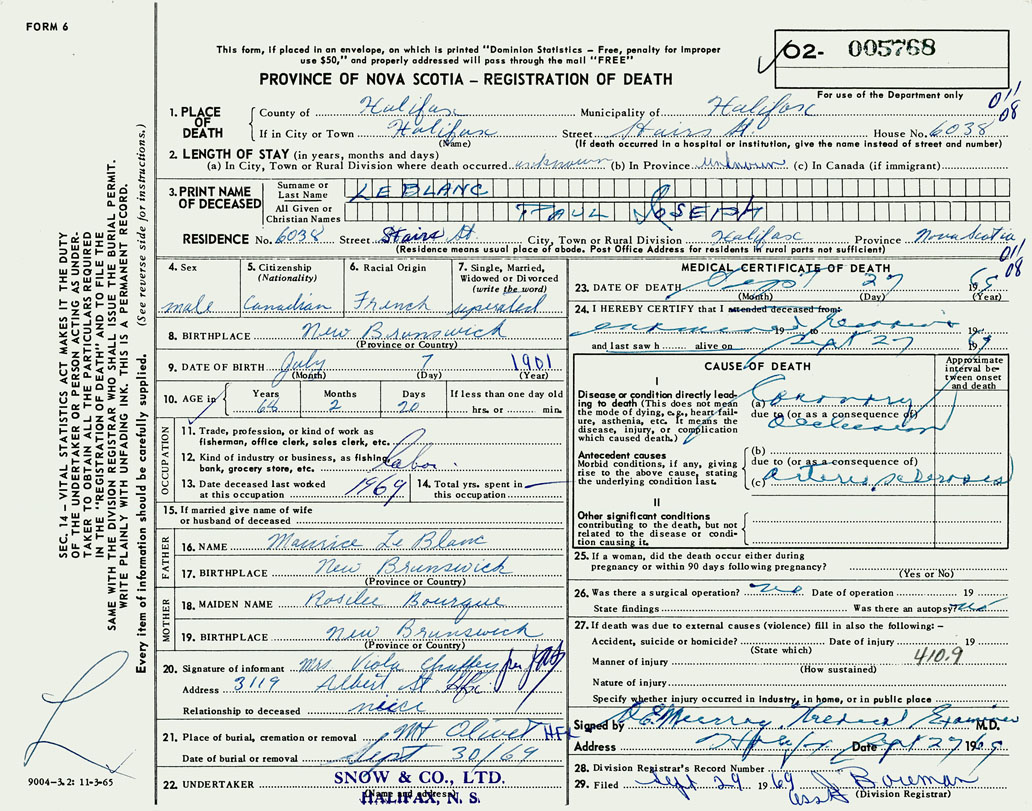 FORM 6
This form, if placed in an envelope, on which is printed "Dominion Statistics – Free, penalty for improper
use $50," and properly addressed will pass through the mail "FREE"
PROVINCE OF NOVA SCOTIA – REGISTRATION OF DEATH
02- 005768
For use of the Department only
011
08
1. PLACE OF DEATH
County of Halifax Municipality of Halifax
If in City or Town Halifax Street Stairs St. House No. 6038
(Name) (If death occurred in a hospital or institution, give the name instead of street and number)
2. LENGTH OF STAY (in years, months and days)
(a) In City, Town or Rural Division where death occurred unknown (b) In Province unknown (c) In Canada (if immigrant)
3. PRINT NAME OF DECEASED
Surname or Last Name LE BLANC
All Given or Christian Names PAUL JOSEPH
RESIDENCE No. 6038 Street Stairs St. City, Town or Rural Division Halifax Province Nova Scotia
(Residence means usual place of abode. Post Office Address for residents in rural parts not sufficient)
011
08
4. Sex male
5. Citizenship (Nationality) Canadian
6. Racial Origin French
7. Single, Married, Widowed or Divorced (write the word) separated
8. BIRTHPLACE New Brunswick
(Province or Country)
9. DATE OF BIRTH July 7 1901
(Month) (Day) (Year)
10. AGE in Years Months Days If less than one day old
68 2 20 hrs. or min.
OCCUPATION
11. Trade, profession, or kind of work as
fisherman, office clerk, sales clerk, etc.
12. Kind of industry or business, as fishing,
bank, grocery store, etc. Labor.
13. Date deceased last worked
at this occupation 1969
14. Total yrs. spent in
this occupation
15. If married give name of wife
or husband of deceased
FATHER
16. NAME Maurice Le Blanc
17. BIRTHPLACE New Brunswick
(Province or Country)
MOTHER
18. MAIDEN NAME Rosilee Bourque
19. BIRTHPLACE New Brunswick
(Province or Country)
20. Signature of informant Mrs Viola Chaffey per
Address 3119 Albert St Hfx
Relationship to deceased niece
21. Place of burial, cremation or removal Mt Olivet HFX
Date of burial or removal Sept 30/69
22. UNDERTAKER SNOW & CO., LTD.
(Name and address) HALIFAX, N. S.
MEDICAL CERTIFICATE OF DEATH
23. DATE OF DEATH Sept 27 19
(Month) (Day) (Year)
24. I HEREBY CERTIFY that I attended deceased from:
examined 19 to 19
and last saw h alive on Sept 27 19
CAUSE OF DEATH
Approximate interval between onset and death
I
Disease or condition directly leading
to death (This does not mean
the mode of dying, e.g., heart failure,
asthenia, etc. It means the
disease, injury, or complication
which caused death.)
(a) Coronary
due to (or as a consequence of)
Occlusion
Antecedent causes
Morbid conditions, if any, giving
rise to the above cause, stating
the underlying condition last.
(b)
due to (or as a consequence of)
(c) Arteriosclerosis
II
Other significant conditions
contributing to the death, but not
related to the disease or condition
causing it.
25. If a woman, did the death occur either during
pregnancy or within 90 days following pregnancy?
(Yes or No)
26. Was there a surgical operation? no Date of operation 19
State findings Was there an autopsy? no
27. If death was due to external causes (violence) fill in also the following: –
Accident, suicide or homicide? Date of injury 19
(State which)
Manner of injury 410.9
(How sustained)
Nature of injury
Specify whether injury occurred in industry, in home, or in public place
Signed by Murray Medical Examiner M.D.
Address Halifax Date Sept 27 19
28. Division Registrar's Record Number
29. Filed Sept 29 1969 J. Boreman
Asst (Division Registrar)
SEC. 14 – VITAL STATISTICS ACT MAKES IT THE DUTY
OF THE UNDERTAKER OR PERSON ACTING AS UNDERTAKER
TO OBTAIN ALL THE PARTICULARS REQUIRED
IN THE "REGISTRATION OF DEATH" AND TO FILE THE
SAME WITH THE DIVISION REGISTRAR WHO SHALL ISSUE THE BURIAL PERMIT.
WRITE PLAINLY WITH UNFADING INK. THIS IS A PERMANENT RECORD.
Every item of information should be carefully supplied. (See reverse side for instructions.)
9004-3.2: 11-3-65